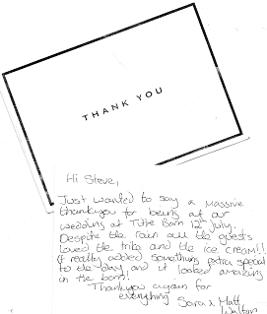 THANK YOU
Hi Steve,
Just wanted to say a massive
thankyou for being at our
wedding at Tithe Barn 12th July.
Despite the rain all the guests
loved the trike and the ice cream!!
It really added something extra special
to the day and it looked amazing
in the barn!
Thankyou again for
everything
Sara x Matt
Walton